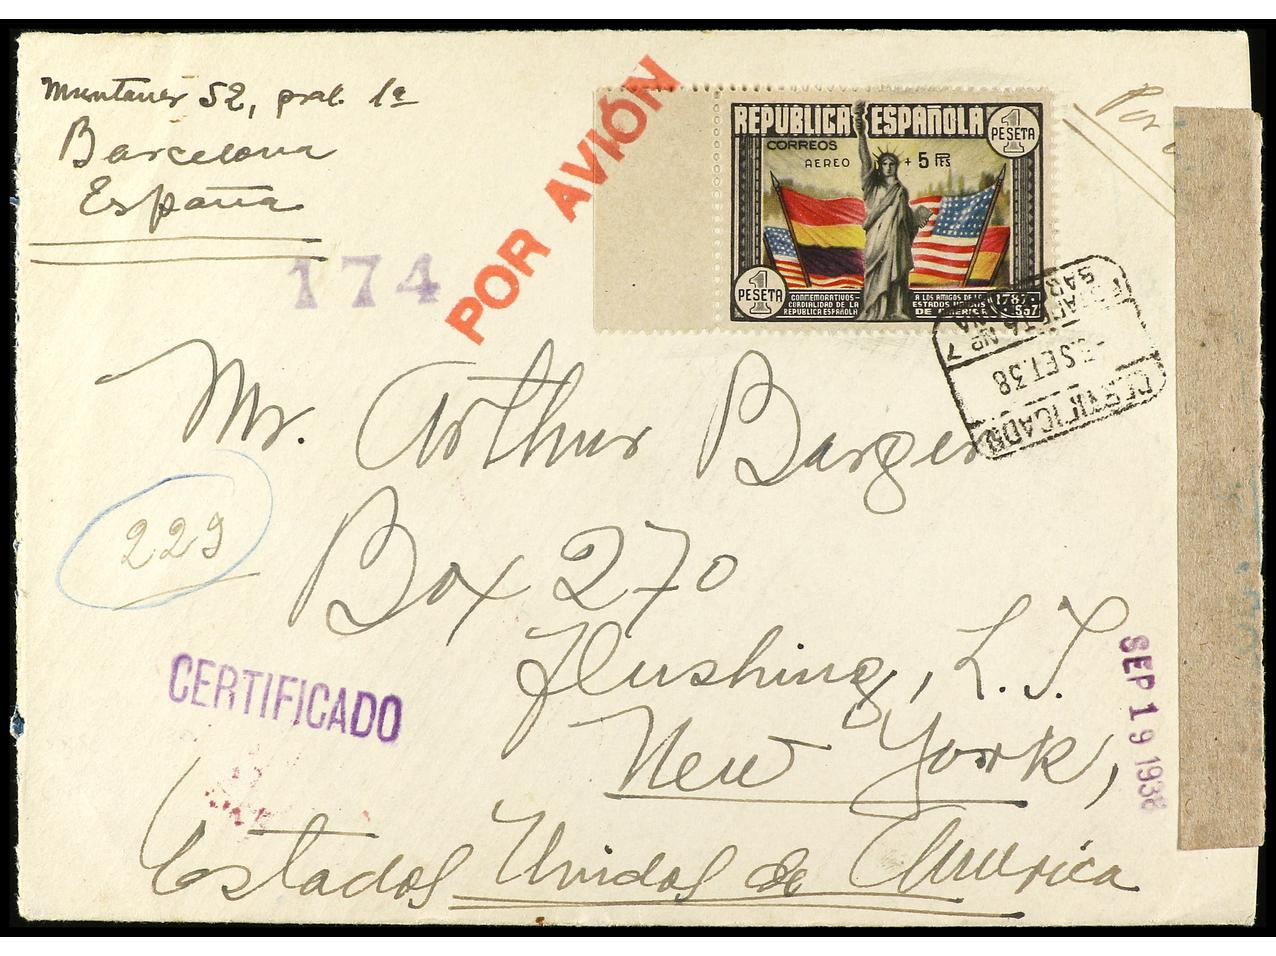 Muntaner 52, pral. 1ª
Barcelona
España
174
POR AVIÓN
Por
REPUBLICA ESPAÑOLA
1 PESETA
CORREOS
AEREO + 5 PTES
1 PESETA
CONMEMORATIVOS-
CORDIALIDAD DE LA
REPUBLICA ESPAÑOLA
A LOS AMIGOS DE LOS
ESTADOS UNIDOS
DE AMERICA
1787-
CERTIFICADO
SET.38
Nº 7
Mr. Arthur Barger
Box 270
Flushing, L.I.
New York,
Estados Unidos de America
229
CERTIFICADO
SEP 19 1938